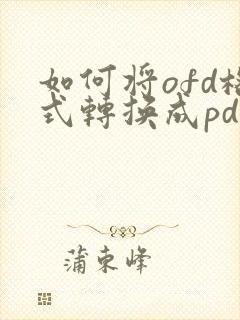 如何将ofd格
式轉换成pd
蒲東峰